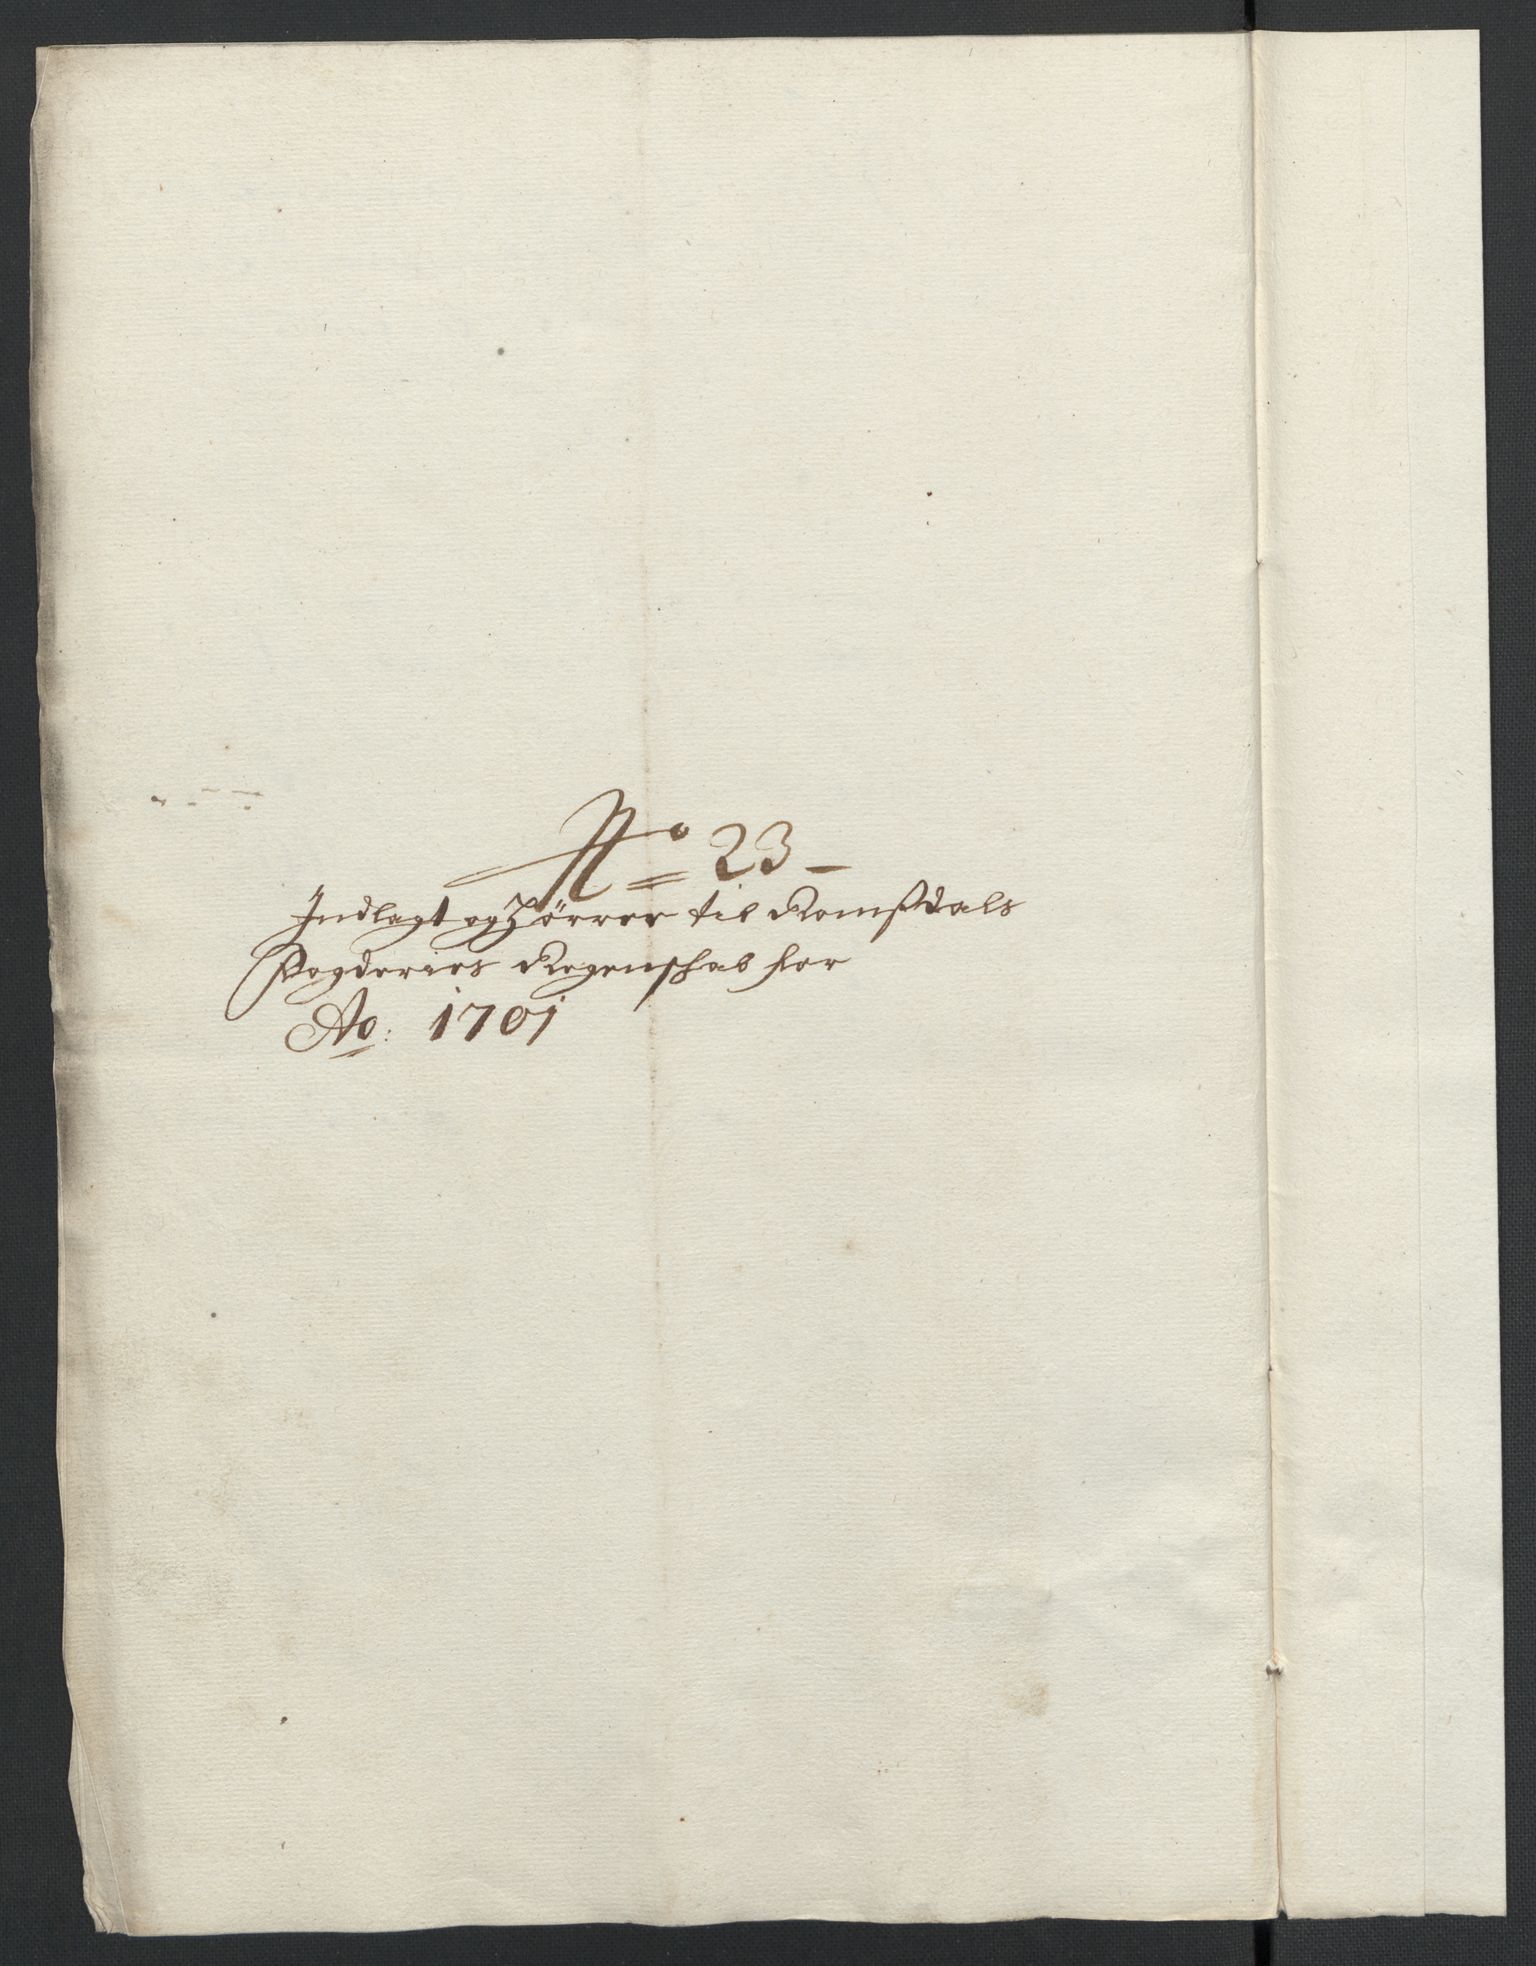 No 23
Indlagt og Hörrer til Romßdals
Fogderies Regenschab for
Ao: 1701